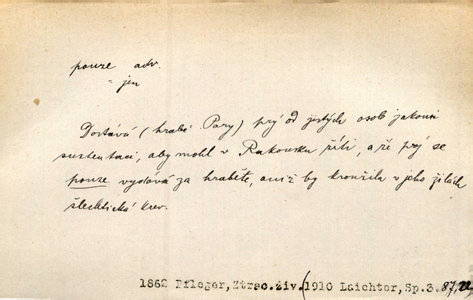 pouze adv.
= jen
Dostává (hrabě Pary) prý od jistých osob jakousi
sustentaci, aby mohl v Rakousku žíti, a že prý se
pouze vydává za hraběte, aniž by kroužila v jeho žilách
šlechtická krev.
1862 Pfleger, Ztrac.živ.(1910 Laichter, Sp.3.87,